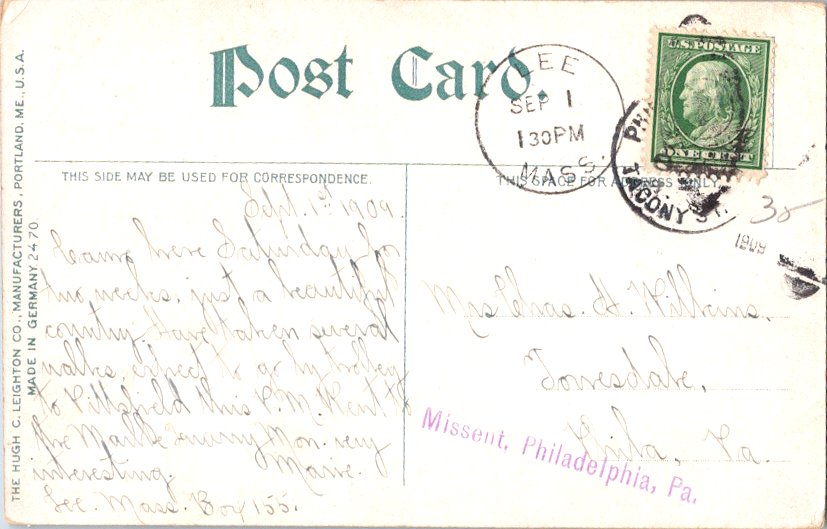 Post Card.
LEE
SEP 1
130PM
MASS.
U.S. POSTAGE
ONE CENT
TACONY ST
1909
35
THIS SIDE MAY BE USED FOR CORRESPONDENCE.
THIS SPACE FOR ADDRESS ONLY.
Sept. 1st 1909.
Came here Saturday for
two weeks, just a beautiful
country. Have taken several
walks, expect to go by trolley
to Pittsfield this P.M. Went to
the Marble Quarry Mon. very
interesting. Marie.
Lee. Mass. Box 155.
Mrs Chas. H. Wilkins.
Torresdale,
Phila, Pa.
Missent, Philadelphia, Pa.
THE HUGH C. LEIGHTON CO., MANUFACTURERS, PORTLAND, ME., U.S.A.
MADE IN GERMANY 2470